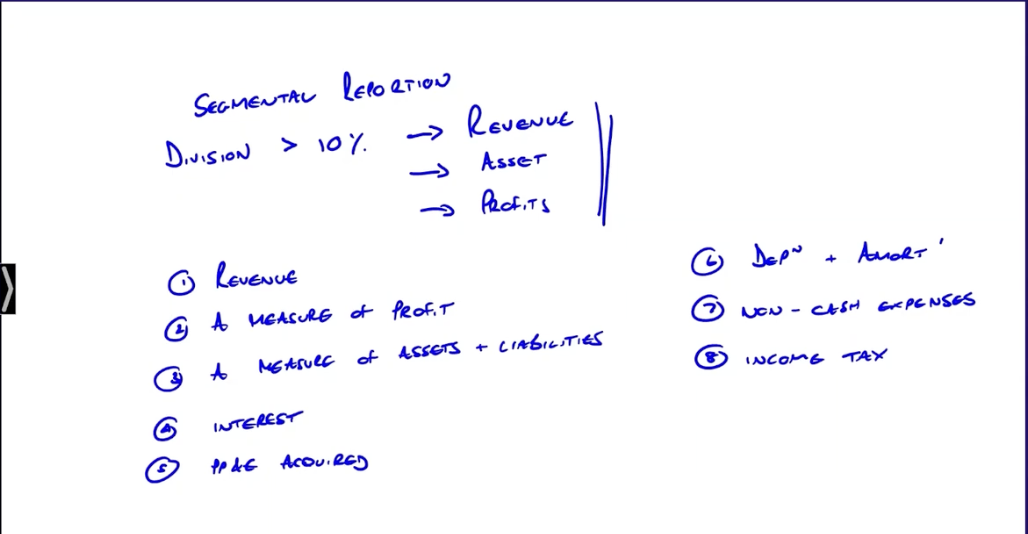 SEGMENTAL REPORTION
DIVISION > 10% → REVENUE
→ ASSET
→ PROFITS
① REVENUE
② A MEASURE OF PROFIT
③ A MEASURE OF ASSETS + LIABILITIES
④ INTEREST
⑤ PP&E ACQUIRED
⑥ DEPN + AMORT'
⑦ NON - CASH EXPENSES
⑧ INCOME TAX